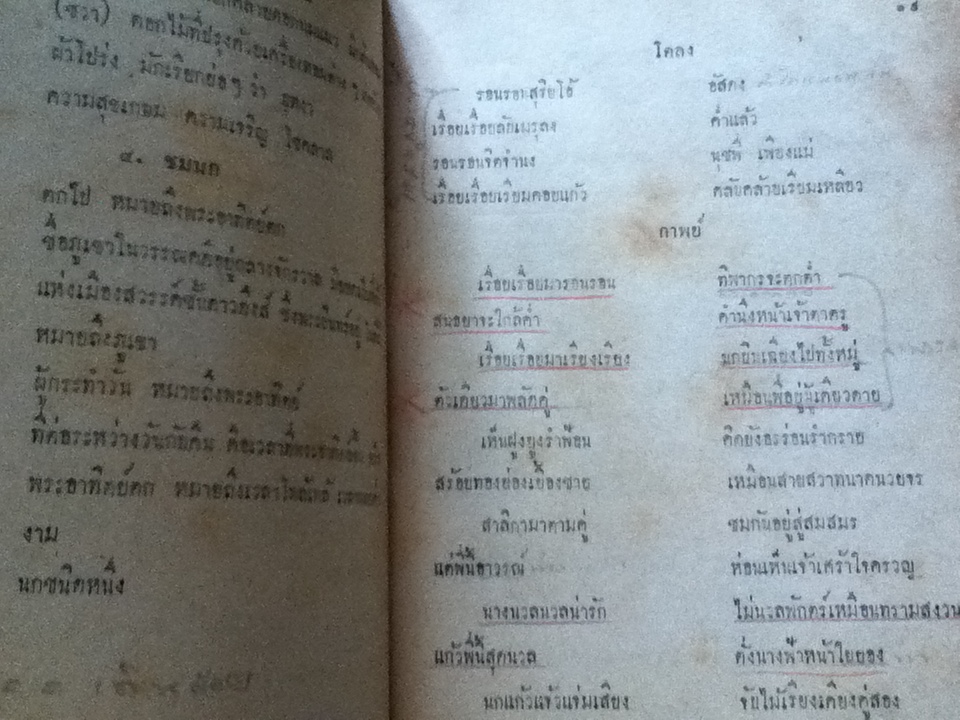 (ชวา) ดอกไม้ที่ปรุงด้วยเครื่องหอมต่าง ๆ
ผ้าโปร่ง มักเรียกย่อๆ ว่า
ความสุขเกษม ความเจริญ โชคลาภ
๔. ชมนก
ตกไป หมายถึงพระอาทิตย์ตก
ชื่อภูเขาในวรรณคดีอยู่กลางจักรวาล
แห่งเมืองสวรรค์ชั้นดาวดึงส์ ซึ่งพระอินทร์อยู่
หมายถึงภูเขา
ผู้กระทำวัน หมายถึงพระอาทิตย์
ที่ต่อระหว่างวันกับคืน คือเวลาที่พระอาทิตย์
พระอาทิตย์ตก หมายถึงเวลาโพล้เพล้
งาม
นกชนิดหนึ่ง
๑๕
โคลง
รอนรอนสุริยโอ้ อัสดง
เรื่อยเรื่อยลับเมรุลง ค่ำแล้ว
รอนรอนจิตจำนง นุชพี่ เพียงแม่
เรื่อยเรื่อยเรียมคอยแก้ว คลับคล้ายเรียมเหลียว
กาพย์
เรื่อยเรื่อยมารอนรอน ทิพากรจะตกต่ำ
สนธยาจะใกล้ค่ำ คำนึงหน้าเจ้าตาตรู
เรื่อยเรื่อยมาเรียงเรียง นกบินเฉียงไปทั้งหมู่
ตัวเดียวมาพลัดคู่ เหมือนพี่อยู่ผู้เดียวดาย
เห็นฝูงยูงรำฟ้อน คิดบังอรร่อนรำกราย
สร้อยทองย่องเยื้องชาย เหมือนสายสวาทนาดนวยจร
สาลิกามาตามคู่ ชมกันอยู่สู่สมสมร
แต่พี่นี้อาวรณ์ ห่อนเห็นเจ้าเศร้าใจครวญ
นางนวลนวลน่ารัก ไม่นวลพักตร์เหมือนทรามสงวน
แก้วพี่นี้สุดนวล ดั่งนางฟ้าหน้าใยยอง
นกแก้วแจ้วแจ่มเสียง จับไม้เรียงเคียงคู่สอง